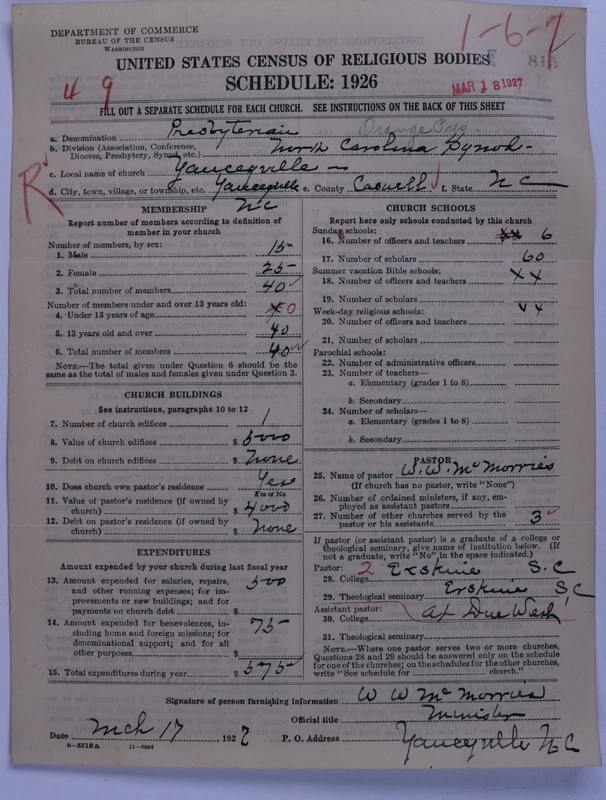 DEPARTMENT OF COMMERCE
BUREAU OF THE CENSUS
WASHINGTON
1-6-7
815
UNITED STATES CENSUS OF RELIGIOUS BODIES
SCHEDULE: 1926
MAR 18 1927
4 9
FILL OUT A SEPARATE SCHEDULE FOR EACH CHURCH. SEE INSTRUCTIONS ON THE BACK OF THIS SHEET
a. Denomination Presbyterian Orange Pres.
b. Division (Association, Conference, Diocese, Presbytery, Synod, etc.) North Carolina Synod
R
c. Local name of church Yanceyville
d. City, town, village, or township, etc. Yanceyville e. County Caswell f. State N C
N C
MEMBERSHIP
Report number of members according to definition of
member in your church
Number of members, by sex:
1. Male 15
2. Female 25
3. Total number of members 40
Number of members under and over 13 years old:
4. Under 13 years of age 0
5. 13 years old and over 40
6. Total number of members 40
NOTE.—The total given under Question 6 should be
same as the total of males and females given under Question 3.
CHURCH BUILDINGS
See instructions, paragraphs 10 to 12
7. Number of church edifices 1
8. Value of church edifices $ 5000
9. Debt on church edifices $ None
10. Does church own pastor's residence? Yes
Yes or No
11. Value of pastor's residence (if owned by
church) $ 4000
12. Debt on pastor's residence (if owned by
church) $ None
EXPENDITURES
Amount expended by your church during last fiscal year
13. Amount expended for salaries, repairs, 500
and other running expenses; for im-
provements or new buildings; and for
payments on church debt $
14. Amount expended for benevolences, in- 75
cluding home and foreign missions; for
denominational support; and for all
other purposes $
15. Total expenditures during year $ 575
CHURCH SCHOOLS
Report here only schools conducted by this church
Sunday schools:
16. Number of officers and teachers xx 6
17. Number of scholars 60
Summer vacation Bible schools:
18. Number of officers and teachers xx
19. Number of scholars
Week-day religious schools:
20. Number of officers and teachers
21. Number of scholars
Parochial schools:
22. Number of administrative officers
23. Number of teachers—
a. Elementary (grades 1 to 8)
b. Secondary
24. Number of scholars—
a. Elementary (grades 1 to 8)
b. Secondary
PASTOR
25. Name of pastor W. W. McMorries
(If church has no pastor, write "None")
26. Number of ordained ministers, if any, em-
ployed as assistant pastors
27. Number of other churches served by the
pastor or his assistants 3
If pastor (or assistant pastor) is a graduate of a college or
theological seminary, give name of institution below. (If
not a graduate, write "No" in the space indicated.)
Pastor: 2
28. College Erskine S.C
29. Theological seminary Erskine SC
Assistant pastor: at Due West
30. College
31. Theological seminary
NOTE.—Where one pastor serves two or more churches,
Questions 28 and 29 should be answered only on the schedule
for one of the churches; on the schedules for the other churches,
write "See schedule for church."
Signature of person furnishing information W W McMorries
Official title Minister
Date Mch 17 1927 P. O. Address Yanceyville N C
8—5518a 11—9034